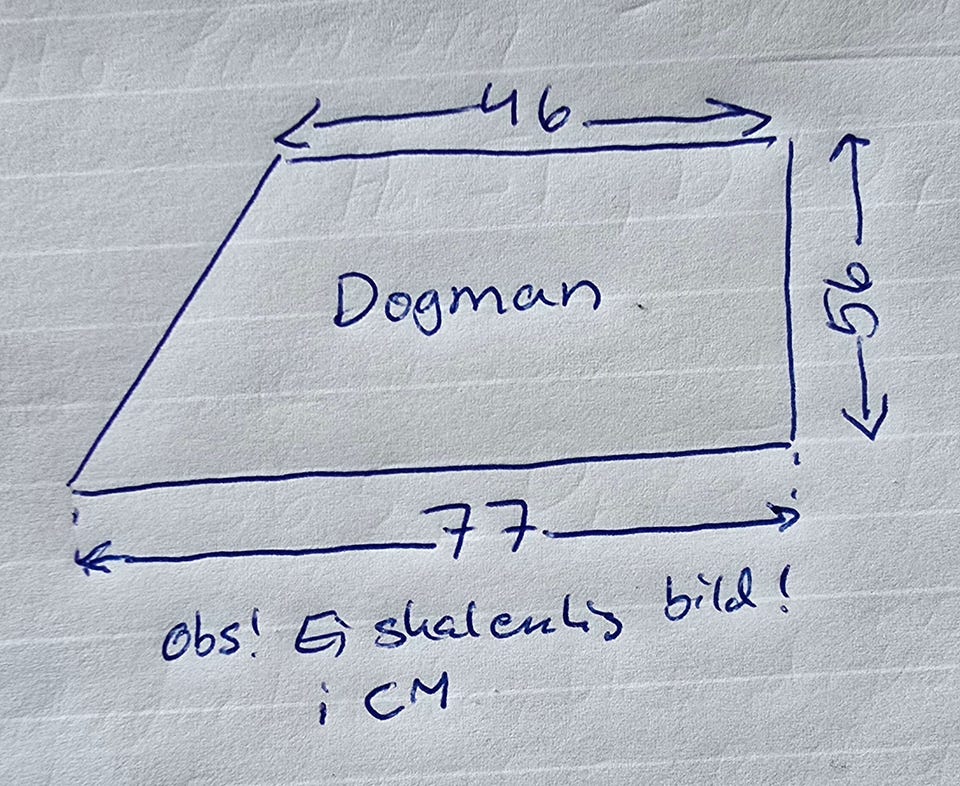 46
Dogman
56
77
Obs! Ej skalenlig bild!
i CM